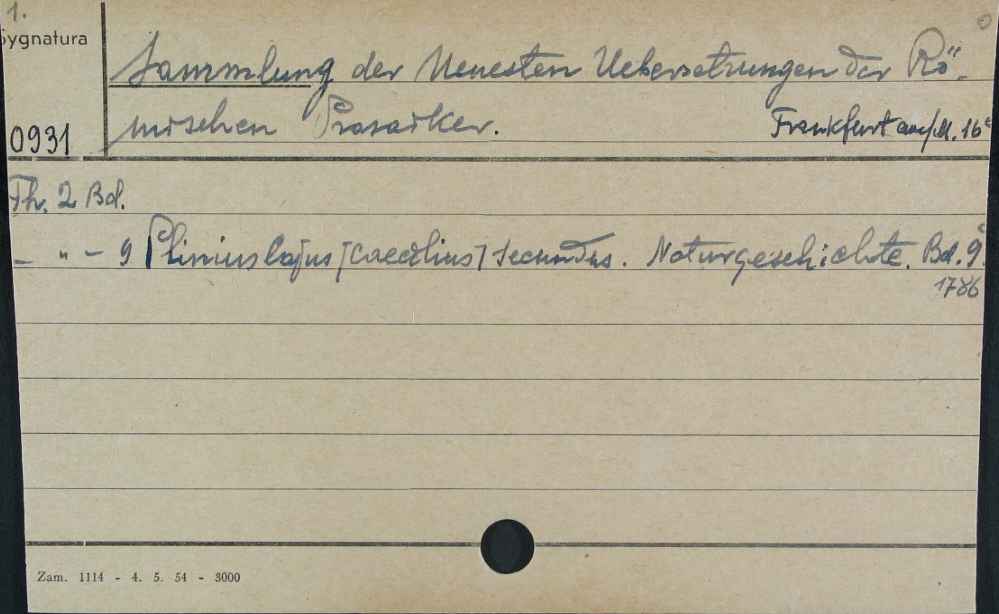 1.
Sygnatura
Sammlung der Neuesten Uebersetzungen der Rö-
mischen Prosaiker. Frankfurt am/M. 16°
0931
Th. 2 Bd.
– " – 9 Plinius Cajus [Caecilius] Secundus. Naturgeschichte. Bd. 9.
1786
Zam. 1114 - 4. 5. 54 - 3000